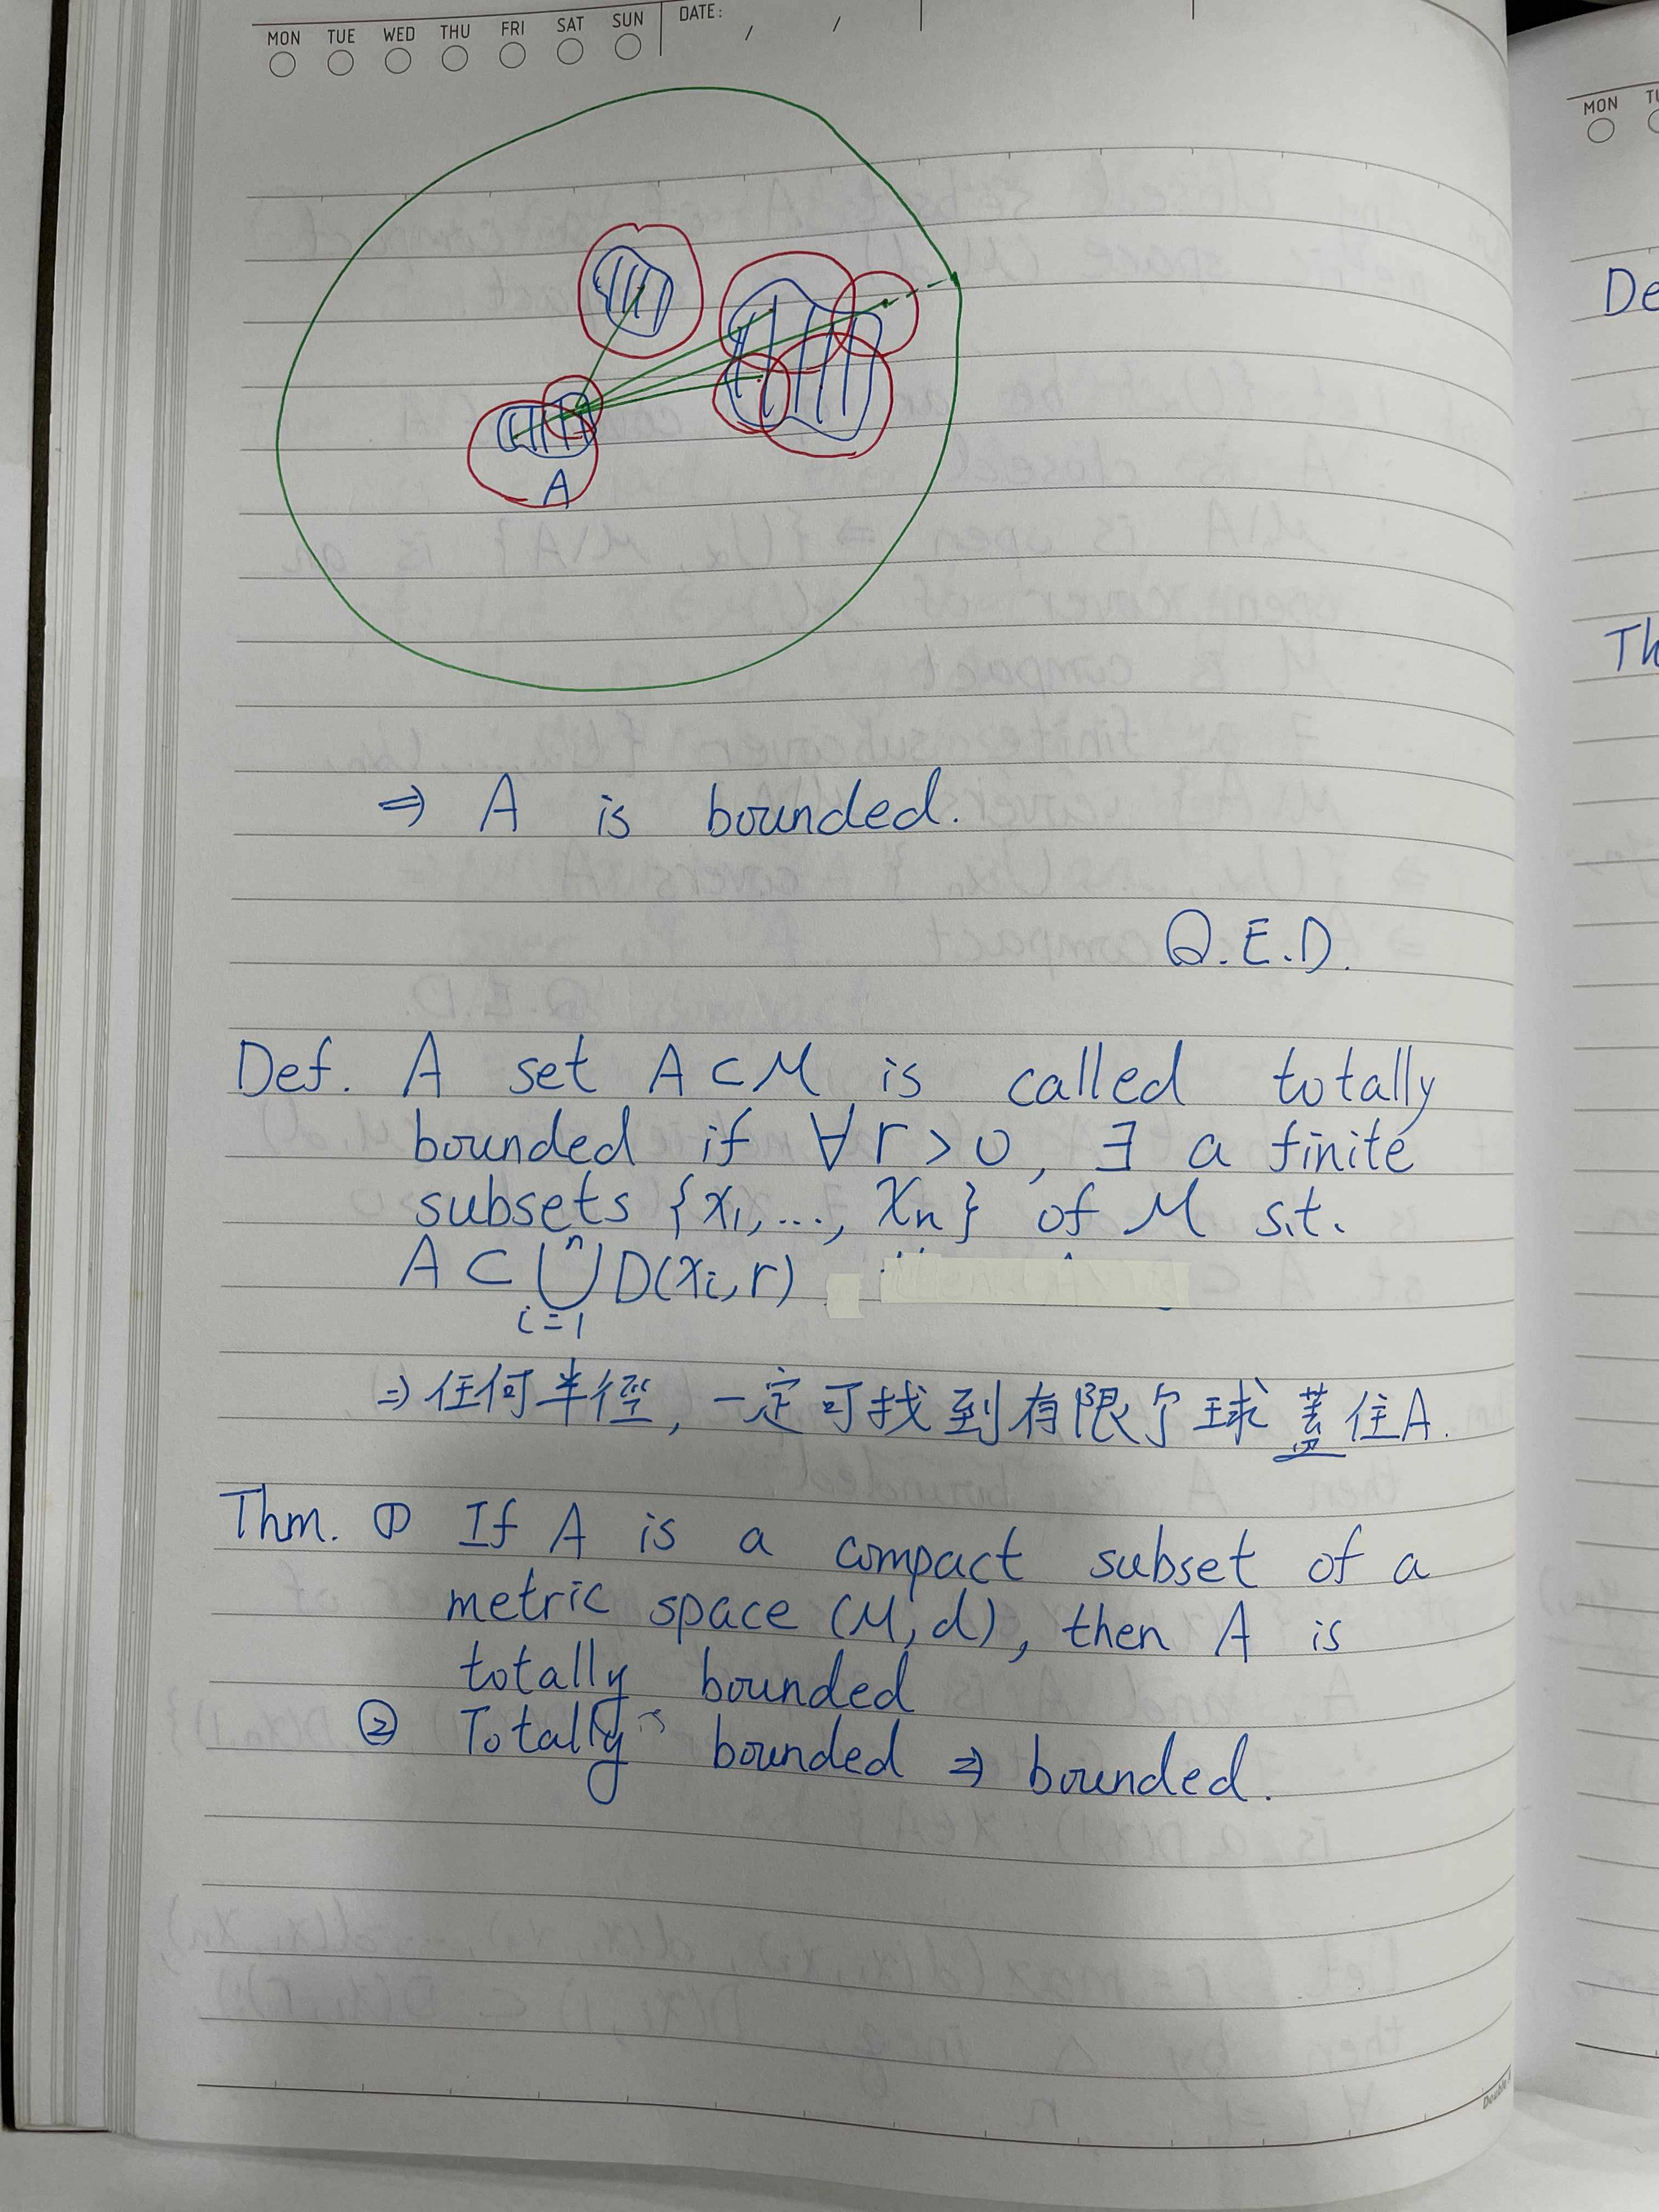 MON TUE WED THU FRI SAT SUN DATE: / /
A
⇒ A is bounded.
Q.E.D.
Def. A set A⊂M is called totally
bounded if ∀r>0, ∃ a finite
subsets {x₁,..., xₙ} of M s.t.
A ⊂ ⋃ⁿᵢ₌₁ D(xᵢ,r)
⇒任何半径, 一定可找到有限个球蓋住A.
Thm. ① If A is a compact subset of a
metric space (M,d), then A is
totally bounded
② Totally is bounded ⇒ bounded.
MON
De
Th